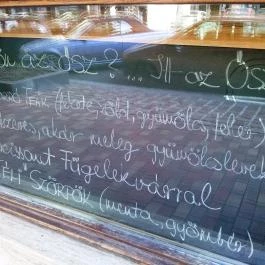 az ŐSZ? ... Itt az ŐSZ
TEÁK (fekete, zöld, gyümölcs, fehér)
akár meleg gyümölcslevek
Fügelekvárral
TÉLI SZÖRPÖK (menta, gyömbér)